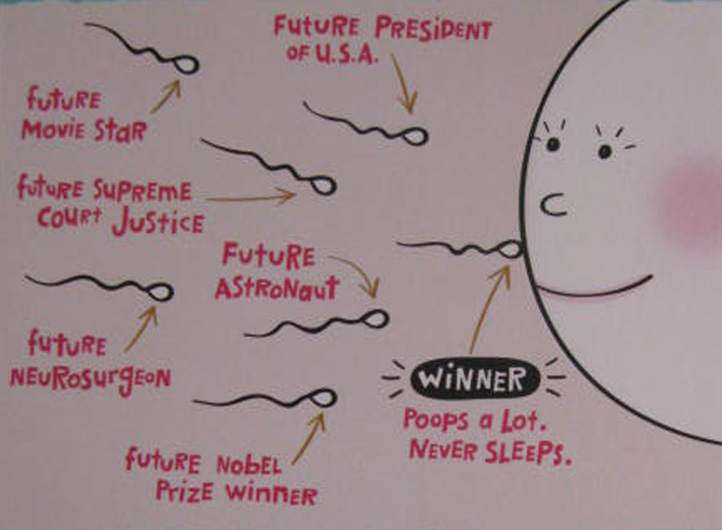 FUTURE PRESIDENT
OF U.S.A.
future
Movie Star
future Supreme
Court Justice
Future
Astronaut
future
Neurosurgeon
WINNER
Poops a Lot.
Never Sleeps.
future Nobel
Prize Winner